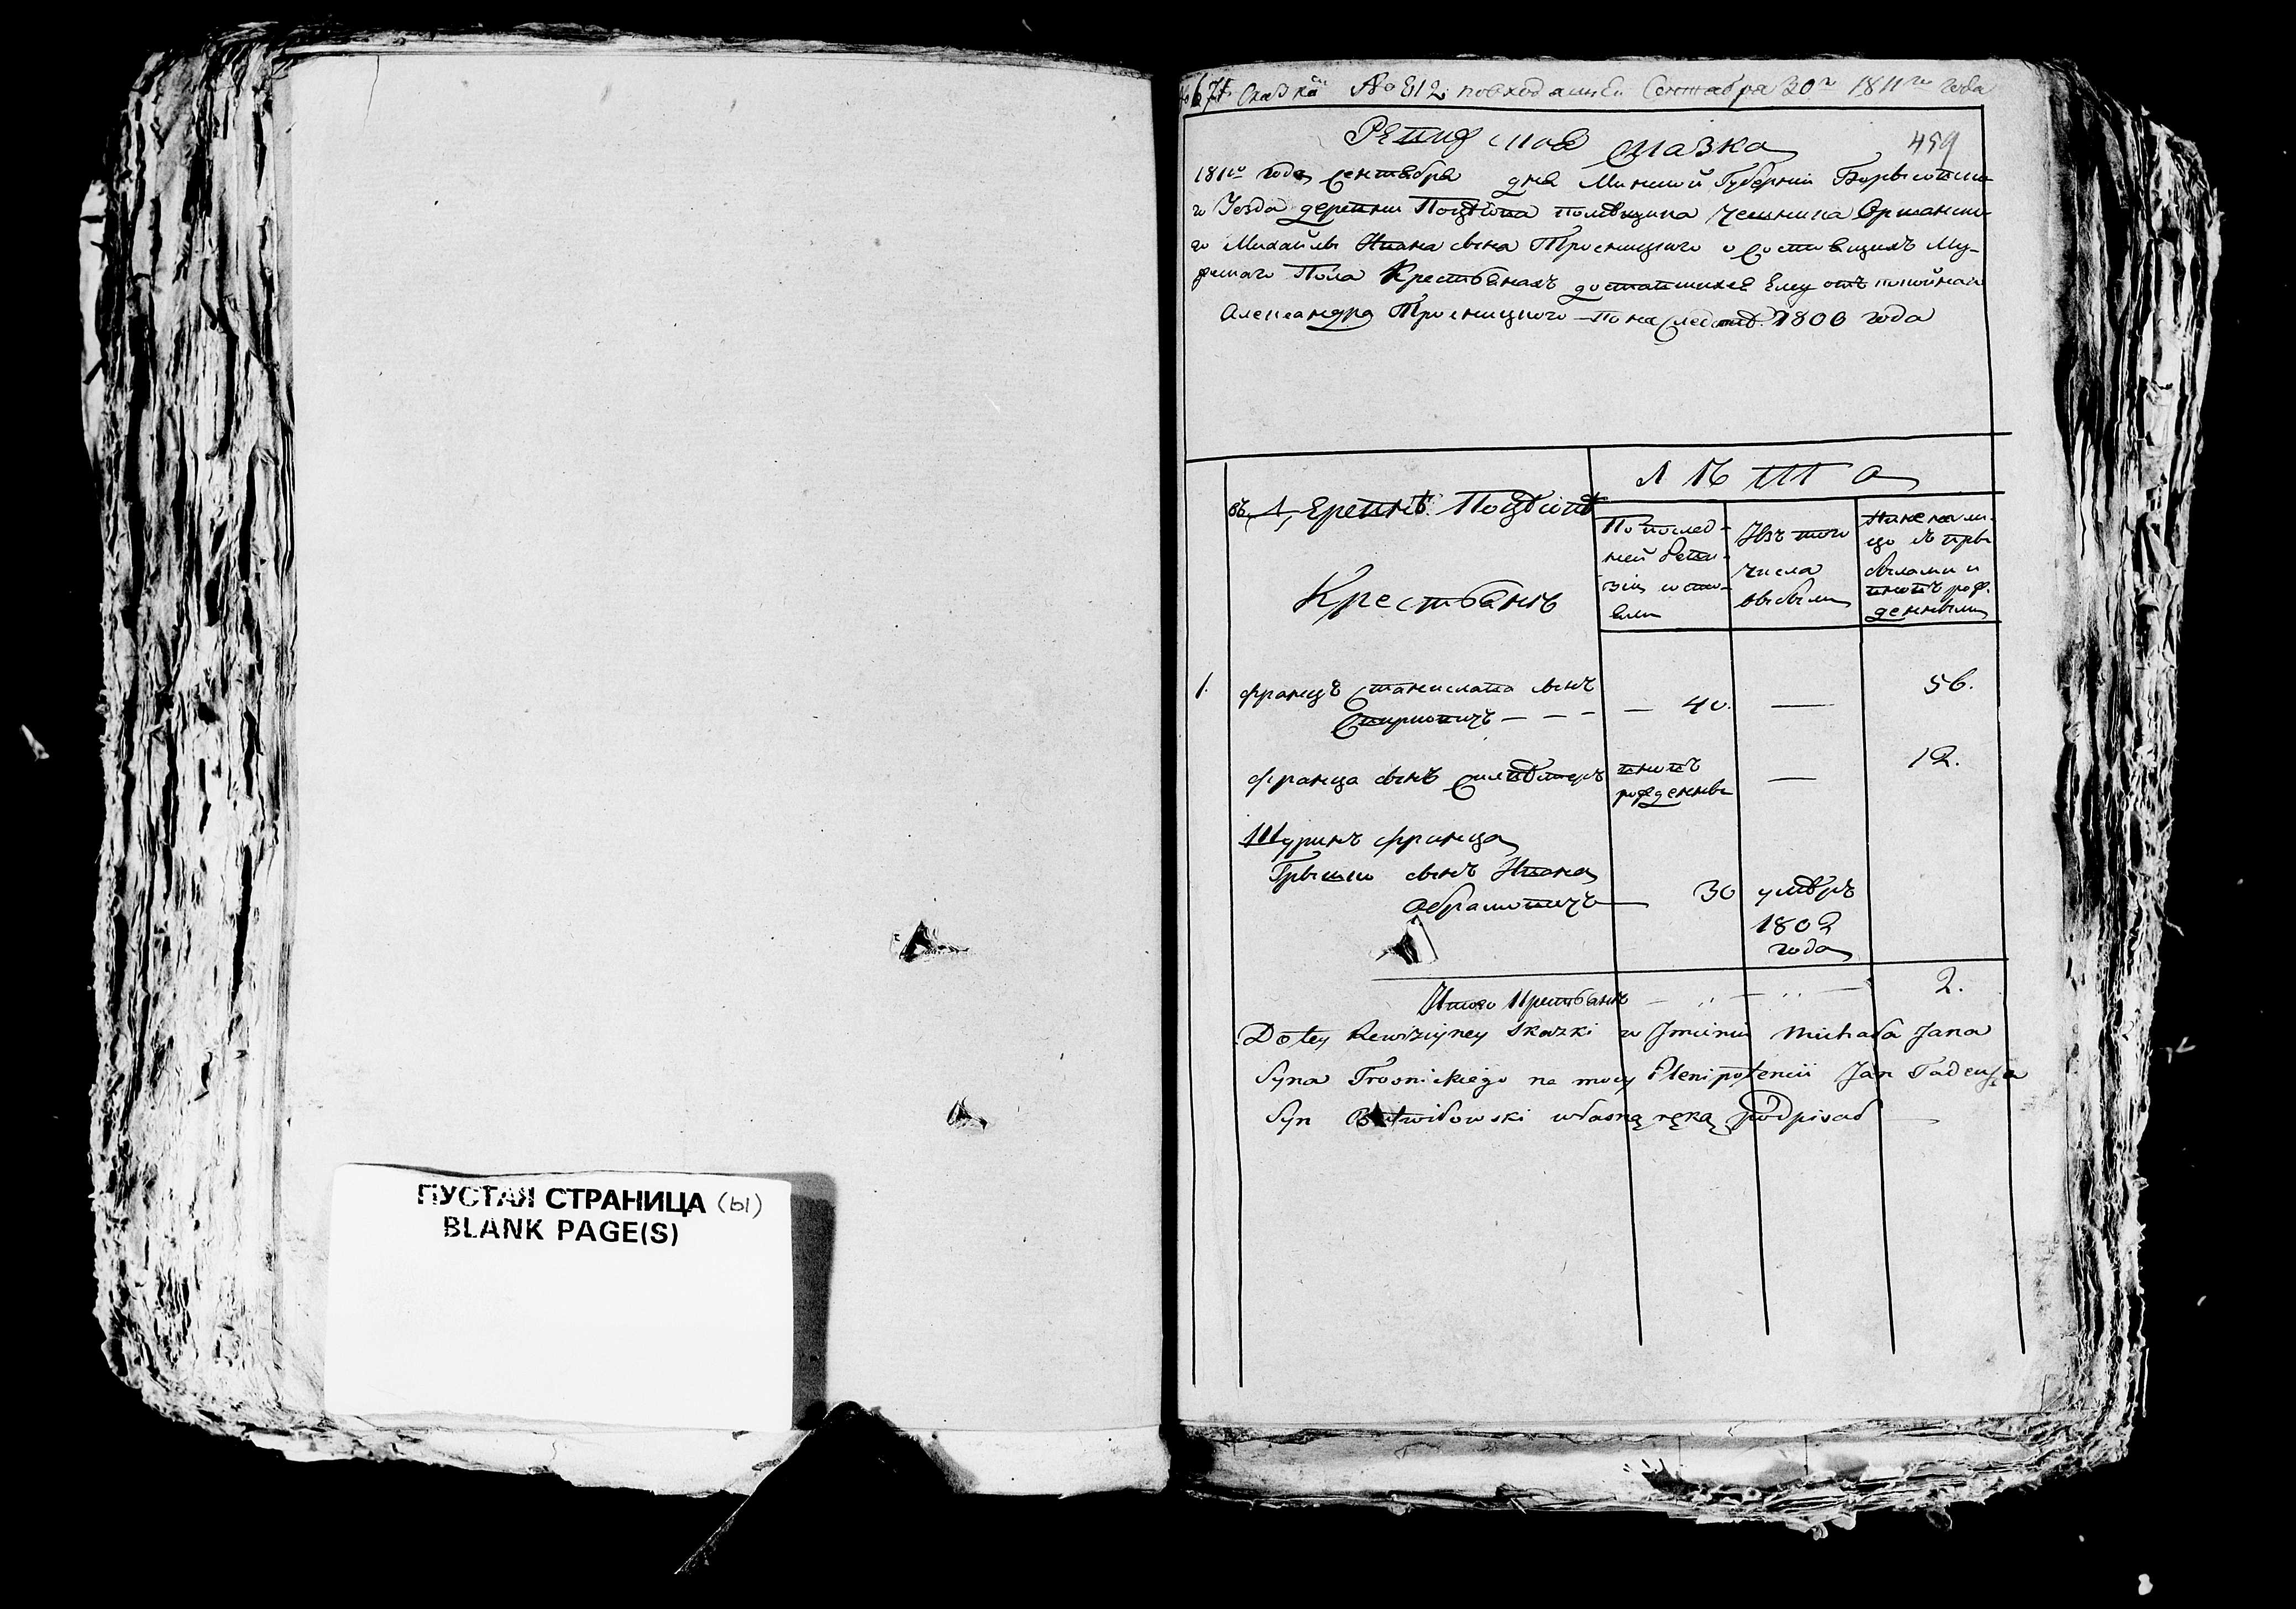 Сказка № 812 по входящей Сентября 30го 1811го года
459
Ревизская Сказка
1811го года Сентября дня Минской Губернии Борисовска
го Уезда деревни помещика Чешника Оршанска
го Михайлы Ивана сына Тросницкого о состоящихъ Му-
жеска Пола Крестьянахъ доставшихся Ему отъ покойнаго
Александра Тросницкого по наследств. 1806 года
ЛѢТА
въ Деревнѣ
Крестьянъ
По послед-
ней Реви-
зіи состо-
яли
Изъ того
числа
выбыли
Ныне на ли-
цо съ при
былыми и
вновъ рож.
денными
1. Францъ Станислава сынъ — 40. — 56.
Франца сынъ Сильвестръ вновъ рожденны — 12.
Шуринъ Франца
Грышко сынъ Ивана
Абрамовичъ — 30 умѣръ
1802
года
Итого Крестьянъ — 2.
Do tey Rewizyiney Skazki w Jmieniu Michała Jana
Syna Trosnickiego na mocy Plenipotencii Jan Tadeusza
Syn własną ręką podpisał
ПУСТАЯ СТРАНИЦА (Ы)
BLANK PAGE(S)